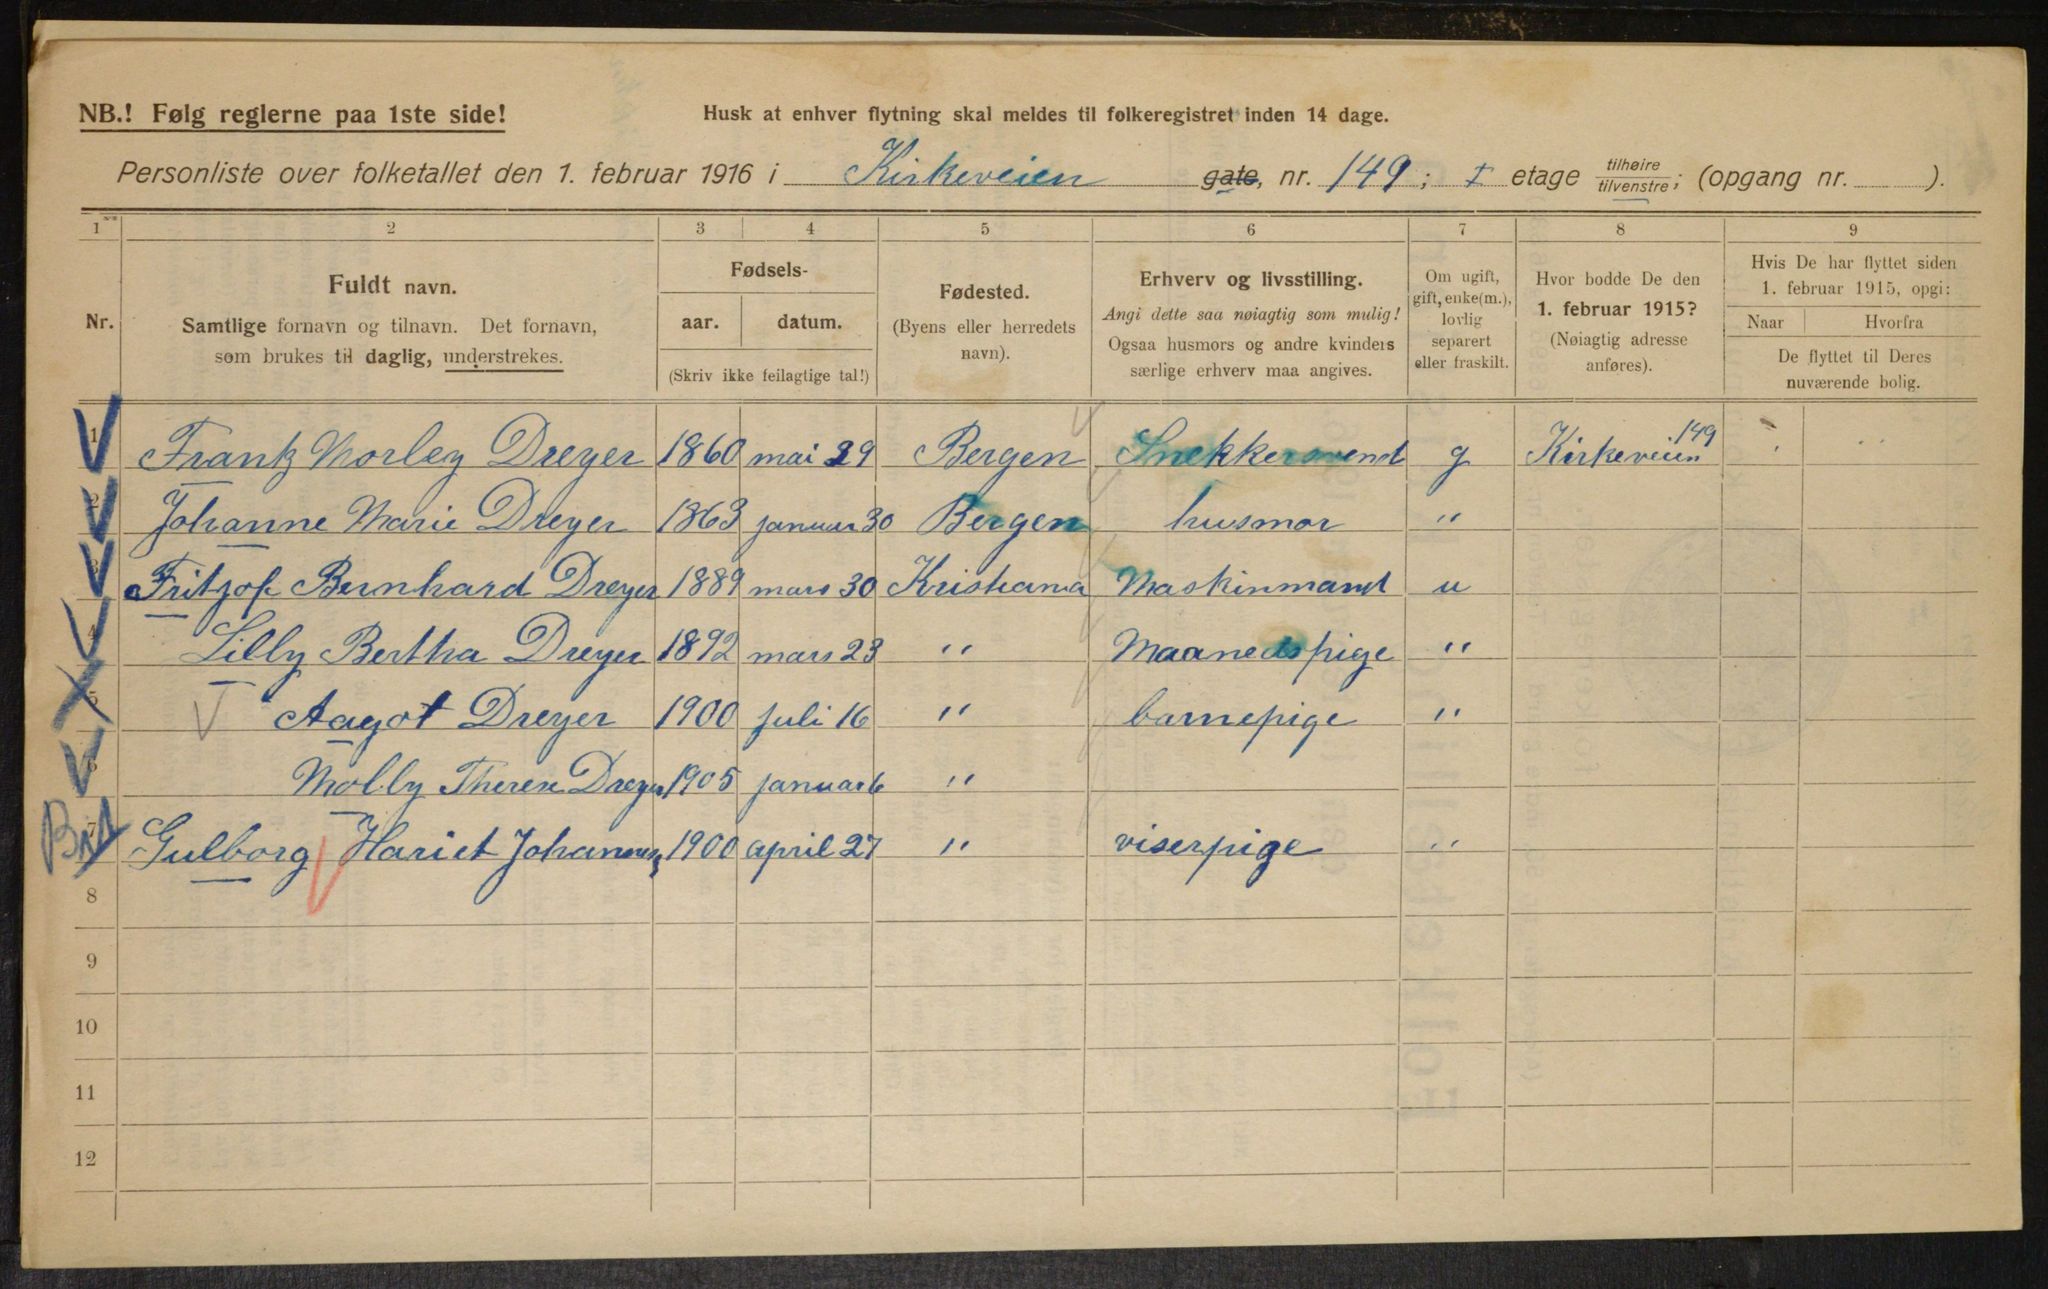 NB.! Følg reglerne paa 1ste side!
Husk at enhver flytning skal meldes til folkeregistret inden 14 dage.
Personliste over folketallet den 1. februar 1916 i Kirkeveien gate, nr. 149; I etage tilhøire tilvenstre; (opgang nr. ).
1 2 3 4 5 6 7 8 9
Nr.
Fuldt navn.
Samtlige fornavn og tilnavn. Det fornavn,
som brukes til daglig, understrekes.
Fødsels-
aar. datum.
(Skriv ikke feilagtige tal!)
Fødested.
(Byens eller herredets
navn).
Erhverv og livsstilling.
Angi dette saa nøiagtig som mulig!
Ogsaa husmors og andre kvinders
særlige erhverv maa angives.
Om ugift,
gift, enke(m.),
lovlig
separert
eller fraskilt.
Hvor bodde De den
1. februar 1915?
(Nøiagtig adresse
anføres).
Hvis De har flyttet siden
1. februar 1915, opgi:
Naar Hvorfra
De flyttet til Deres
nuværende bolig.
1 Frantz Morley Dreyer 1860 mai 29 Bergen Snekkersvend g Kirkeveien 149
2 Johanne Marie Dreyer 1863 januar 30 Bergen husmor "
3 Fritjof Bernhard Dreyer 1889 mars 30 Kristiania Maskinmand u
4 Lilly Bertha Dreyer 1892 mars 23 " Maanedspige "
5 Aagot Dreyer 1900 juli 16 " barnepige "
6 Molly Therese Dreyer 1905 januar 6 "
7 Gulborg Hariet Johannesen 1900 april 27 " viserpige "
8
9
10
11
12